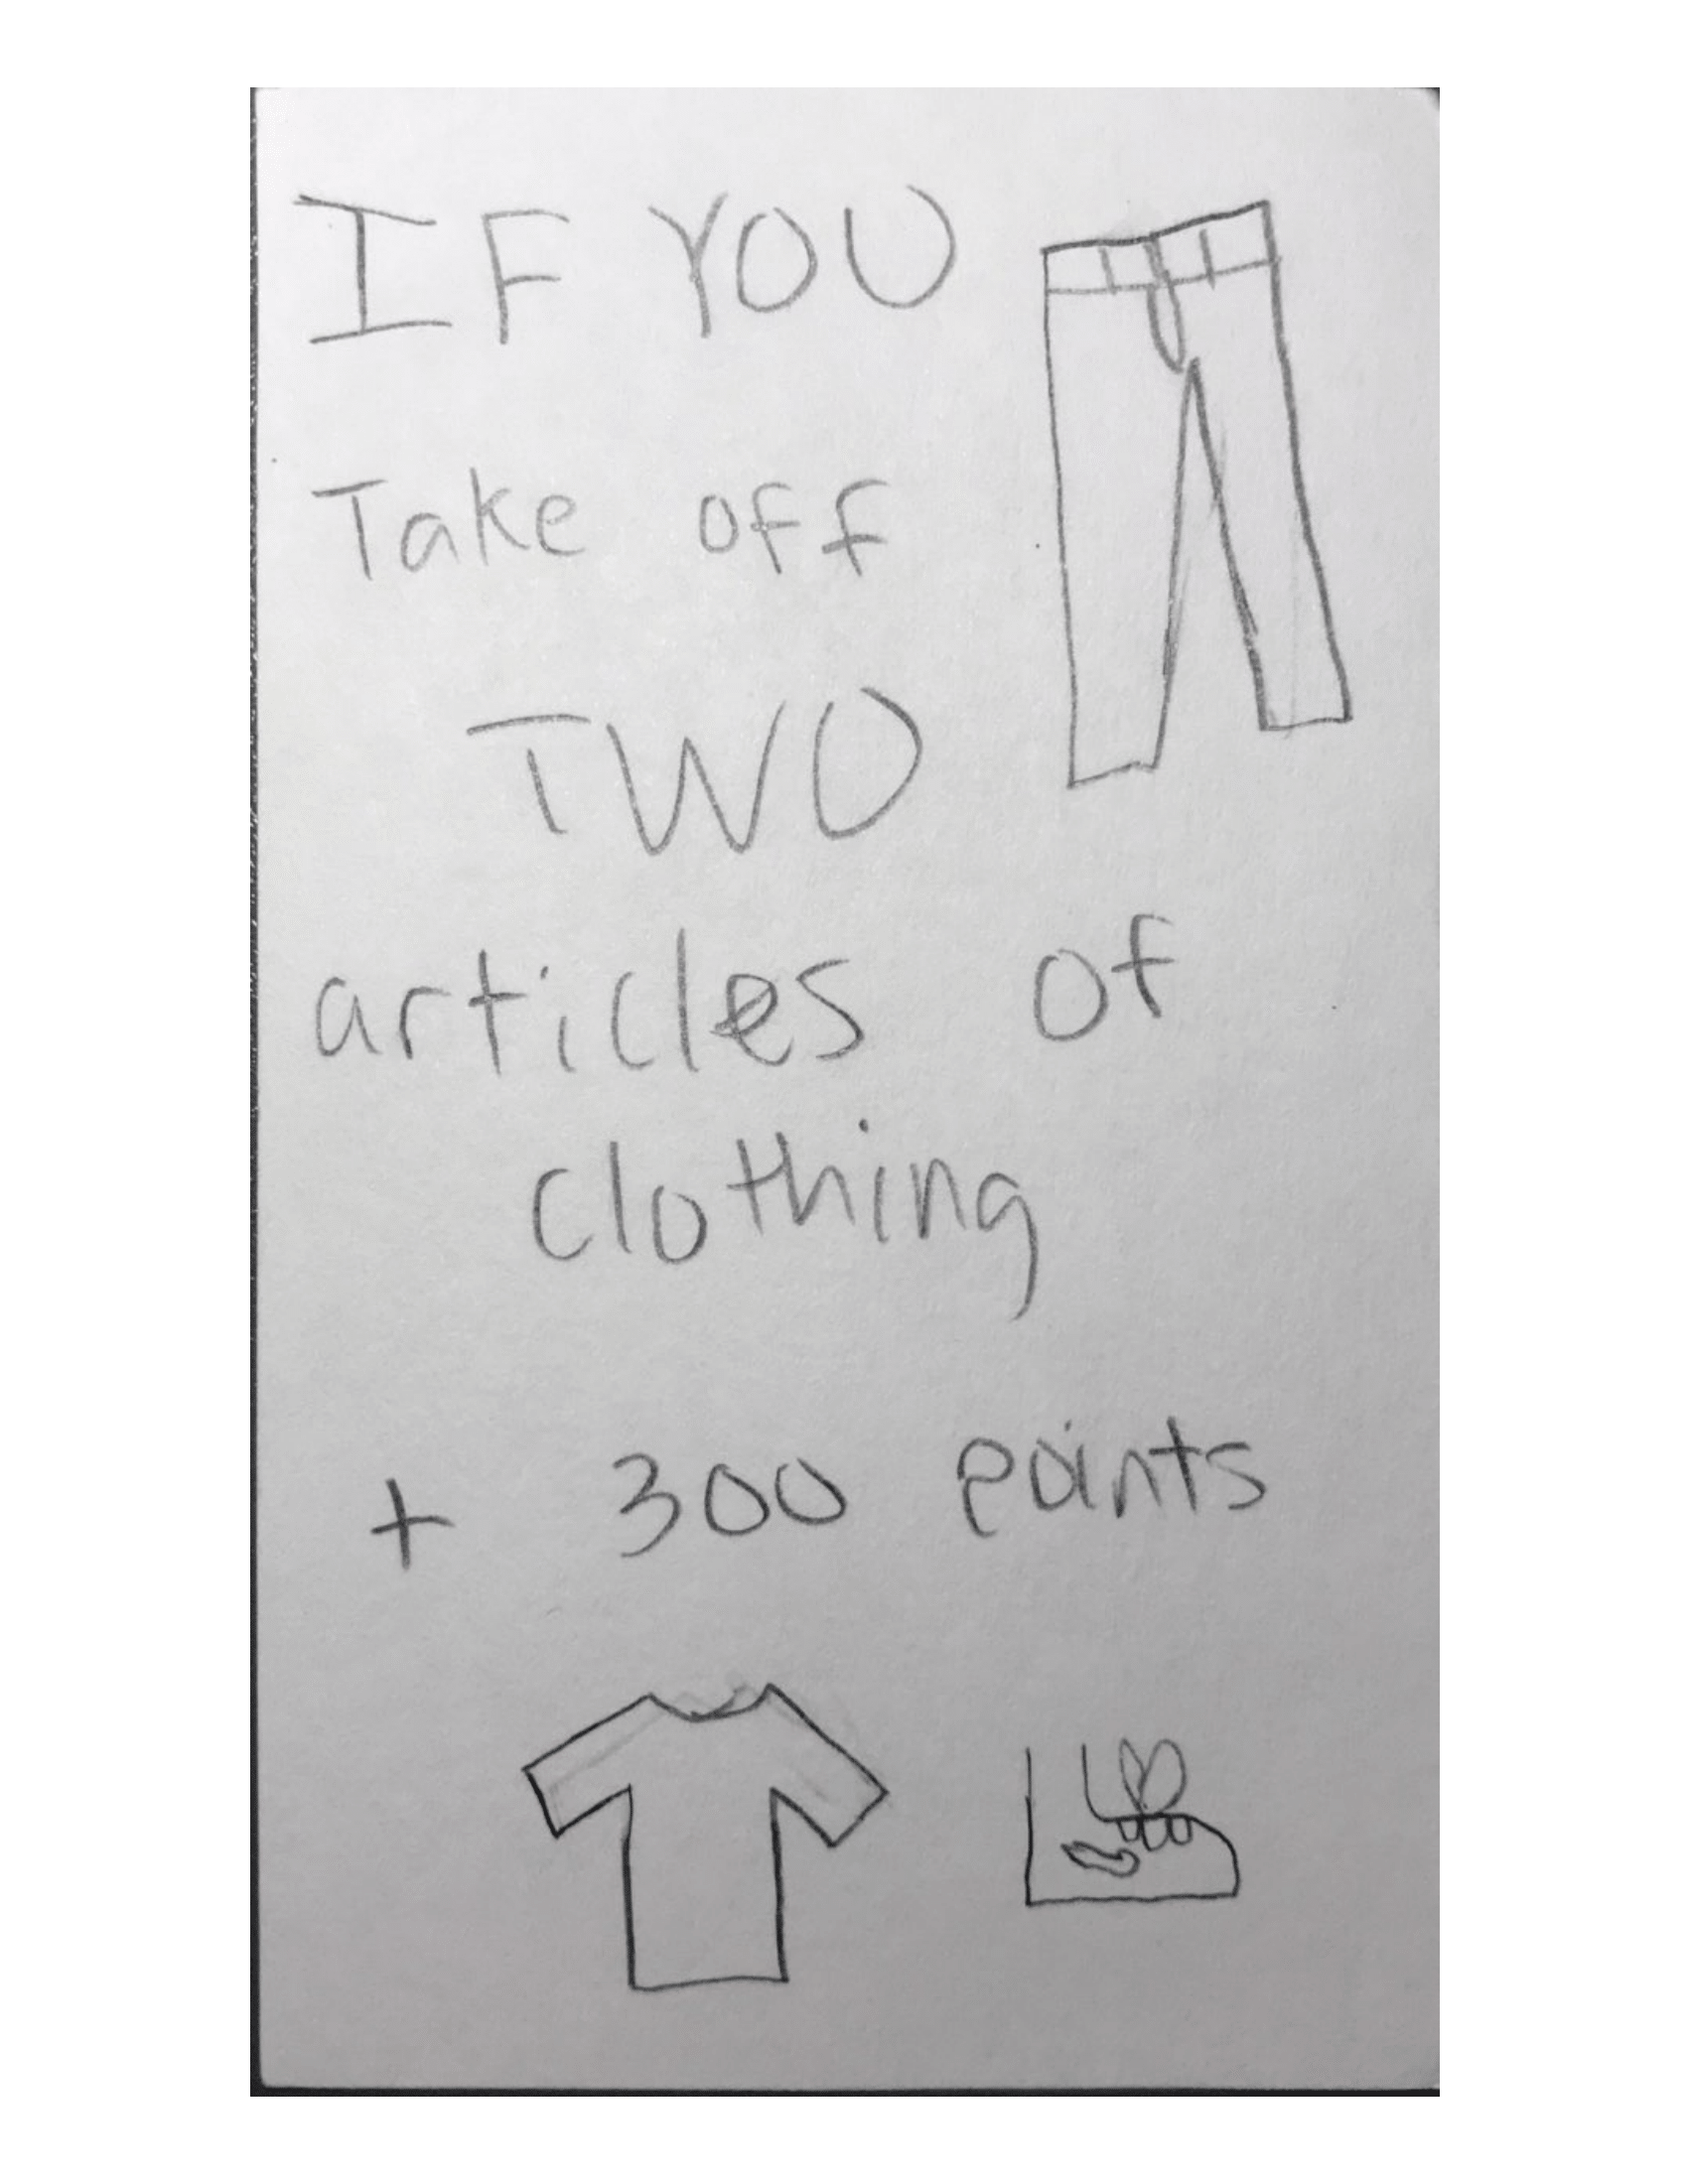 IF YOU
Take off
TWO
articles of
clothing
+ 300 points